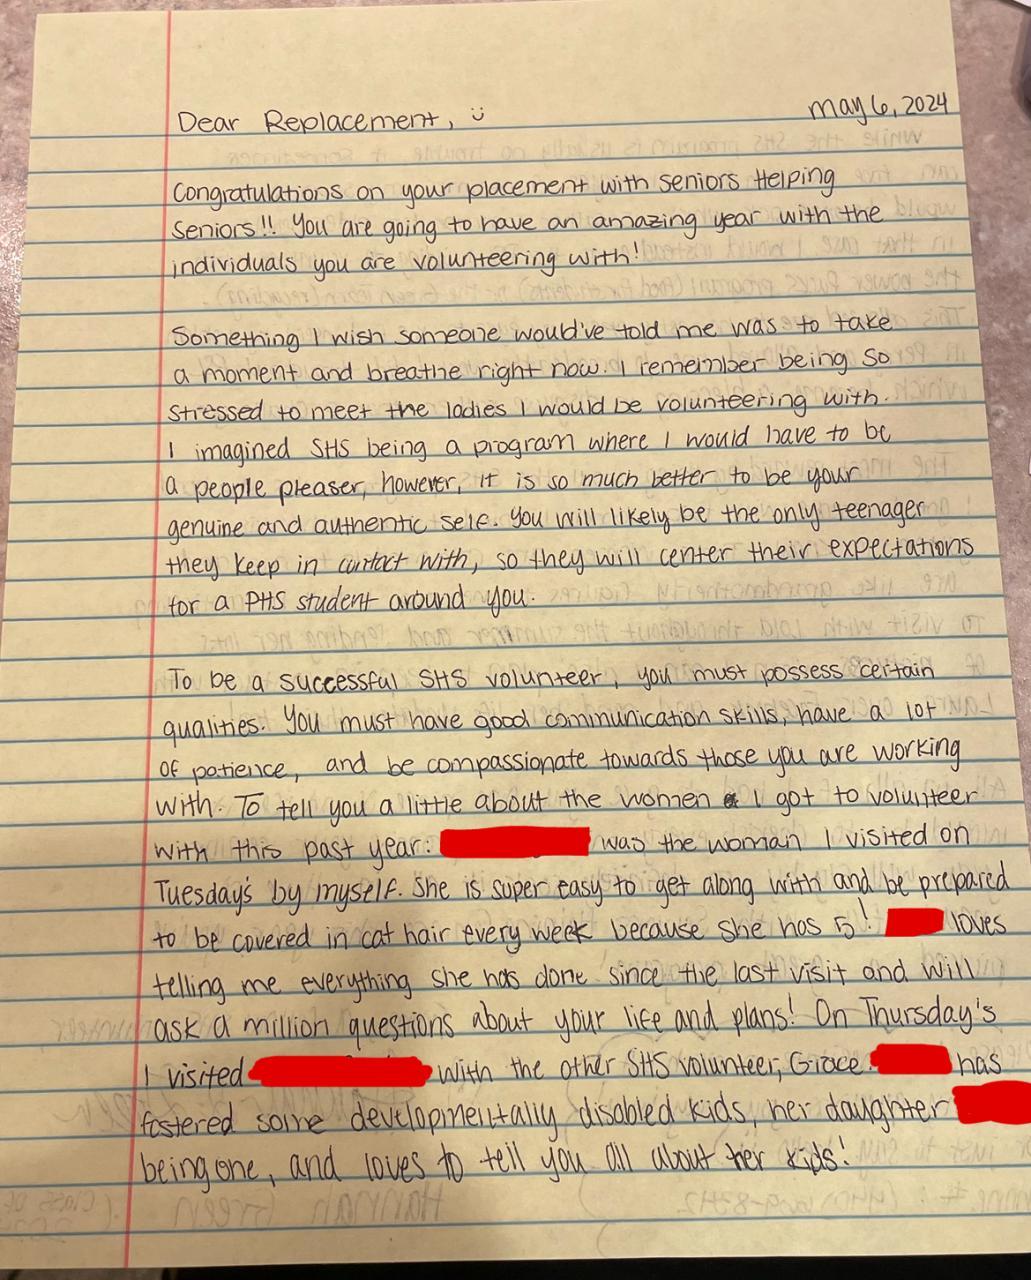 Dear Replacement, :) May 6, 2024
Congratulations on your placement with Seniors Helping
Seniors!! You are going to have an amazing year with the
individuals you are volunteering with!
Something I wish someone would've told me was to take
a moment and breathe right now. I remember being so
stressed to meet the ladies I would be volunteering with.
I imagined SHS being a program where I would have to be
a people pleaser, however, it is so much better to be your
genuine and authentic self. You will likely be the only teenager
they keep in contact with, so they will center their expectations
for a PHS student around you.
To be a successful SHS volunteer, you must possess certain
qualities. You must have good communication skills, have a lot
of patience, and be compassionate towards those you are working
with. To tell you a little about the women I got to volunteer
with this past year: was the woman I visited on
Tuesday's by myself. She is super easy to get along with and be prepared
to be covered in cat hair every week because she has 5! loves
telling me everything she has done since the last visit and will
ask a million questions about your life and plans! On Thursday's
I visited with the other SHS volunteer, Grace. has
fostered some developmentally disabled kids, her daughter
being one, and loves to tell you all about her kids!